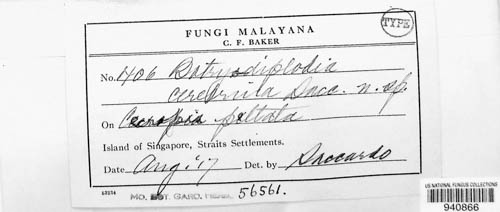 TYPE
FUNGI MALAYANA
C. F. BAKER
No. 1406 Botryodiplodia
Sacc. n. sp.
On Cecropia peltata
Island of Singapore, Straits Settlements.
Date Aug. '17 Det. by Saccardo
MO. BOT. GARD. HERB. 56561.
US NATIONAL FUNGUS COLLECTIONS
940866